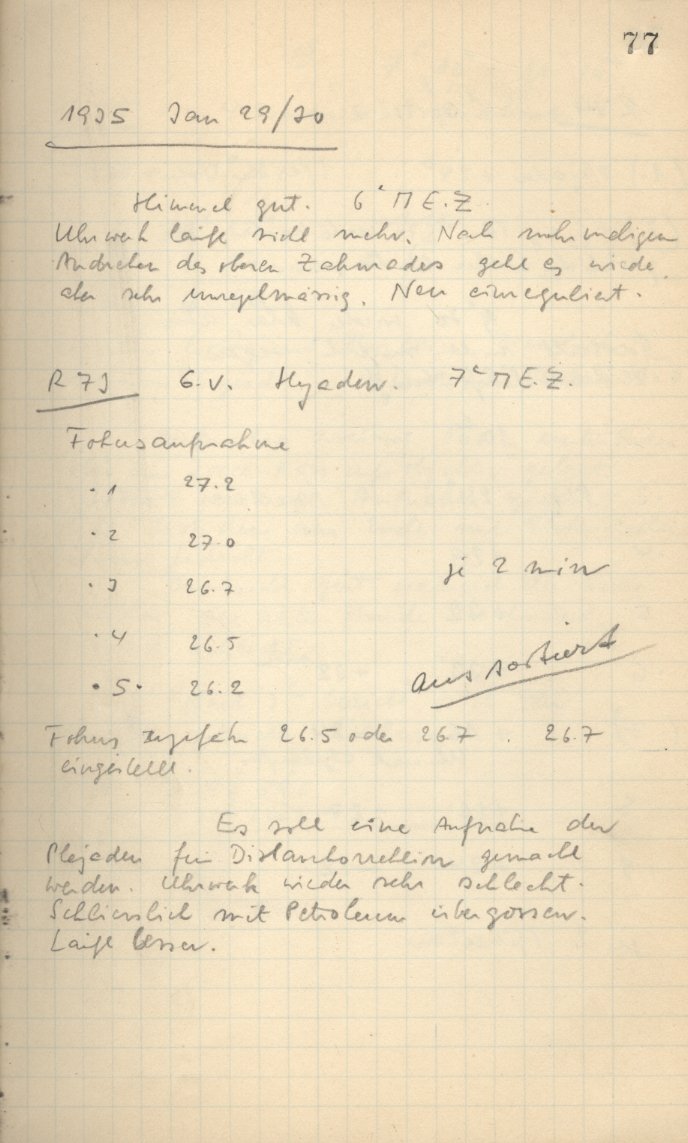 77
1935 Jan 29/30
Himmel gut. 6h MEZ
Uhrwerk läuft nicht mehr. Nach mehrmaligem
Andrehen des oberen Zahnrades geht es wieder
aber sehr unregelmässig. Neu einreguliert.
R 73 6.V. Hyaden. 7h MEZ.
Fokusaufnahme
· 1 27.2
· 2 27.0
· 3 26.7
je 2 min
· 4 26.5
aussortiert
· 5 · 26.2
Fokus ungefähr 26.5 oder 26.7. 26.7
eingestellt.
Es soll eine Aufnahme der
Plejaden für Distanzkorrektion gemacht
werden. Uhrwerk wieder sehr schlecht.
Schliesslich mit Petroleum übergossen.
Läuft besser.